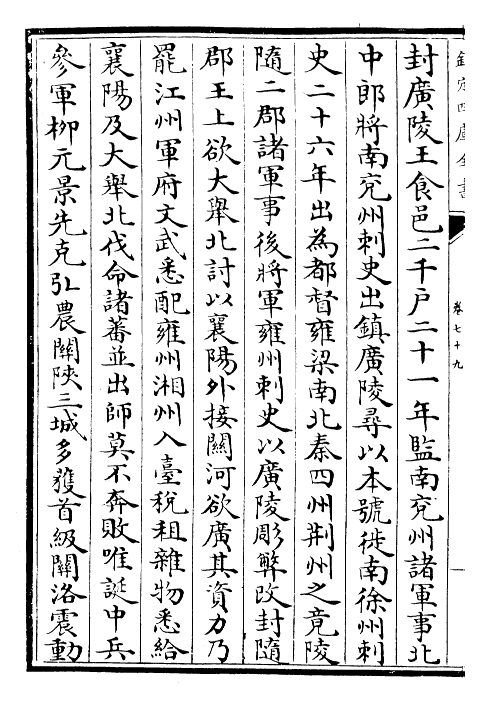 欽定四庫全書
卷七十九
封廣陵王食邑二千户二十一年監南兖州諸軍事北
中郎將南兖州刺史出鎮廣陵尋以本號徙南徐州刺
史二十六年出為都督雍梁南北秦四州荆州之竟陵
隨二郡諸軍事後將軍雍州刺史以廣陵彫弊改封隨
郡王上欲大舉北討以襄陽外接關河欲廣其資力乃
罷江州軍府文武悉配雍州湘州入臺稅租雜物悉給
襄陽及大舉北伐命諸蕃並出師莫不奔敗唯誕中兵
參軍栁元景先克弘農關陜三城多獲首級關洛震動